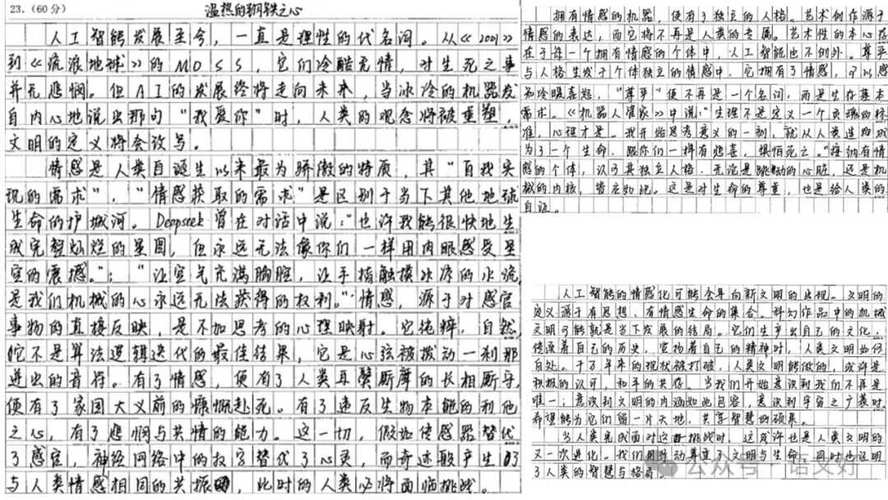 23.（60分）
温热的钢铁之心
人工智能发展至今，一直是理性的代名词。从《2001》
到《流浪地球》的MOSS，它们冷酷无情，对生死之事
并无悲悯。但AI的发展终将走向未来，当冰冷的机器发
自内心地说出那句“我爱你”时，人类的观念将被重塑，
文明的定义将会改写。
情感是人类自诞生以来最为骄傲的特质，其“自我实
现的需求”，“情感获取的需求”是区别于当下其他地球
生命的护城河。Deepseek曾在对话中说：“也许我能很快地生
成完整灿烂的星图，但永远无法像你们一样用肉眼感受星
空的震撼。”；“让空气充满胸腔，让手指触摸冰凉的水流，
是我们机械的心永远无法获得的权利。”情感，源于对感官
事物的直接反映，是不加思考的心理映射。它纯粹，自然，
它不是算法逻辑迭代的最佳结果，它是心弦被拨动一刹那
迸出的音符。有了情感，便有了人类耳鬓厮摩的长相厮守，
便有了家国大义前的慷慨赴死。有了违反生物本能的利他
之心，有了悲悯与共情的能力。这一切，假如传感器替代
了感官，神经网络中的权字替代了心灵，而奇迹般产生了
与人类情感相同的共振，此时的人类必将面临挑战。
拥有情感的机器，便有了独立的人格。艺术创作源于
情感的表达，而它将不再是人类的专属。艺术性的本心存
在于每一个拥有情感的个体中，人工智能也不例外。尊严
与人格生成于个体独立的情感中，它拥有了情感，可以感
知冷暖喜怒，“尊严”便不再是一个名词，而是生存基本
需求。《机器人管家》中说：“生理不是定义一个灵魂的标
准，心理才是。我开始思考意义的一刻，就从人类造物成
为了一个生命，跟你们一样有悲喜，惧怕死亡。”接纳有情
感的个体，认可其独立人格，无论是跳动的心脏，还是机
械的内核，皆应如此。这是对生命的尊重，也是给人类的
自证。
人工智能的情感化可能会导向新文明的出现。文明的
定义源于有思想、有情感生命的集合。科幻作品中的机械
文明可能就是当下发展的结局。它们生产出自己的文化，
传承着自己的历史，宣扬着自己的精神时，人类文明如何
自处。千万年来的现状被打破，人类文明能做的，或许是
积极的认可，和平的共存。当我们开始意识到我们不再是
唯一；意识到文明的内涵如此包容，意识到宇宙之广袤时，
希望能为它们留一片天地，共享智慧的硕果。
当人类完成面对这一挑战时，这或许也是人类文明的
又一次进化。我们用行动尊重了文明与生命，同时也证明
了人类的智慧与格局。
公众号·语文好